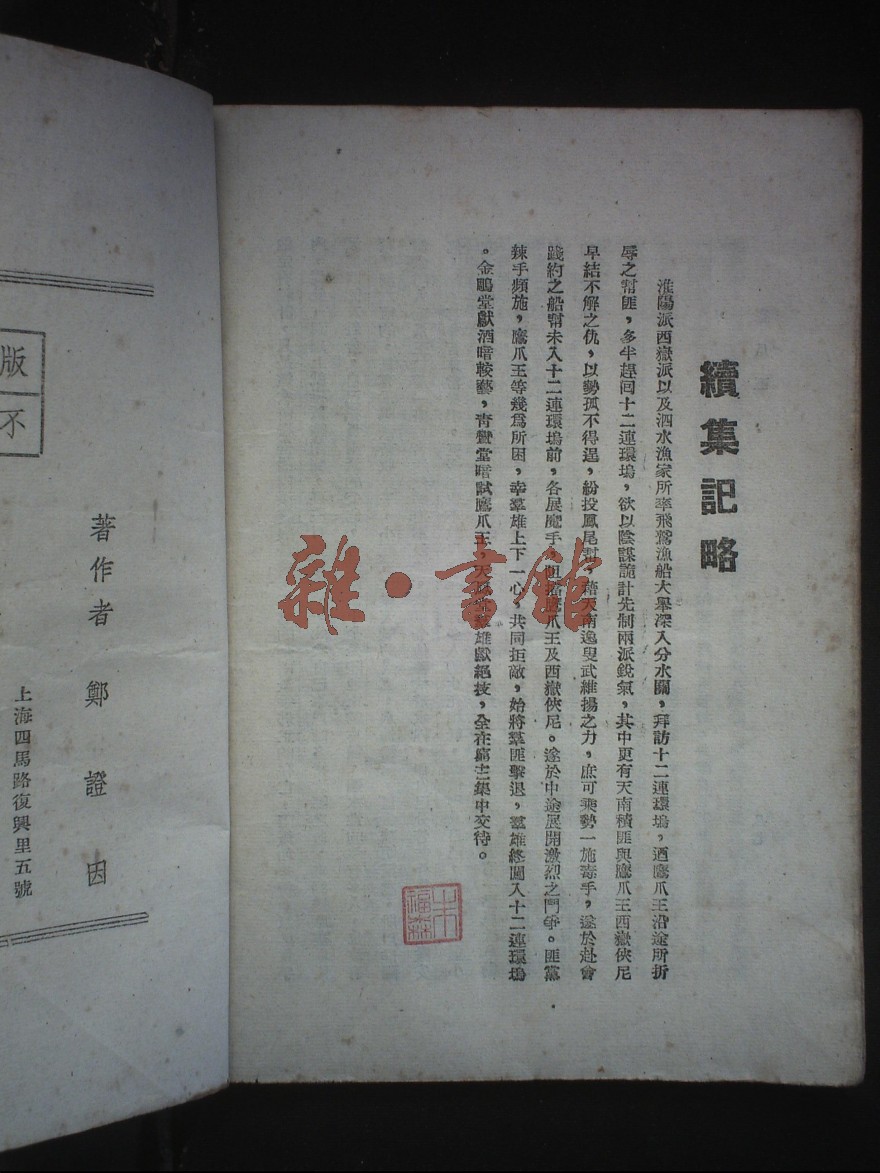 續集記略
淮陽派西嶽派以及泗水漁家所率飛鷲漁船大舉深入分水關，拜訪十二連環塢，迺鷹爪王沿途所折
辱之幫匪，多半趕回十二連環塢，欲以陰謀詭計先制兩派銳氣，其中更有天南積匪與鷹爪王西嶽俠尼
早結不解之仇，以勢孤不得逞，紛投鳳尾幫，藉天南逸叟武維揚之力，庶可乘勢一施毒手，遂於赴會
踐約之船幫未入十二連環塢前，各展魔手，阻擋鷹爪王及西嶽俠尼。遂於中途展開激烈之鬥爭。匪黨
辣手頻施，鷹爪王等幾爲所困，幸羣雄上下一心，共同拒敵，始將羣匪擊退，羣雄終闖入十二連環塢
。金鵰堂獻酒暗較藝，青鸞堂暗試鷹爪王，天 雄獻絕技，全在 集中交待。
雜·書館
福森
版
不
著作者鄭證因
上海四馬路復興里五號